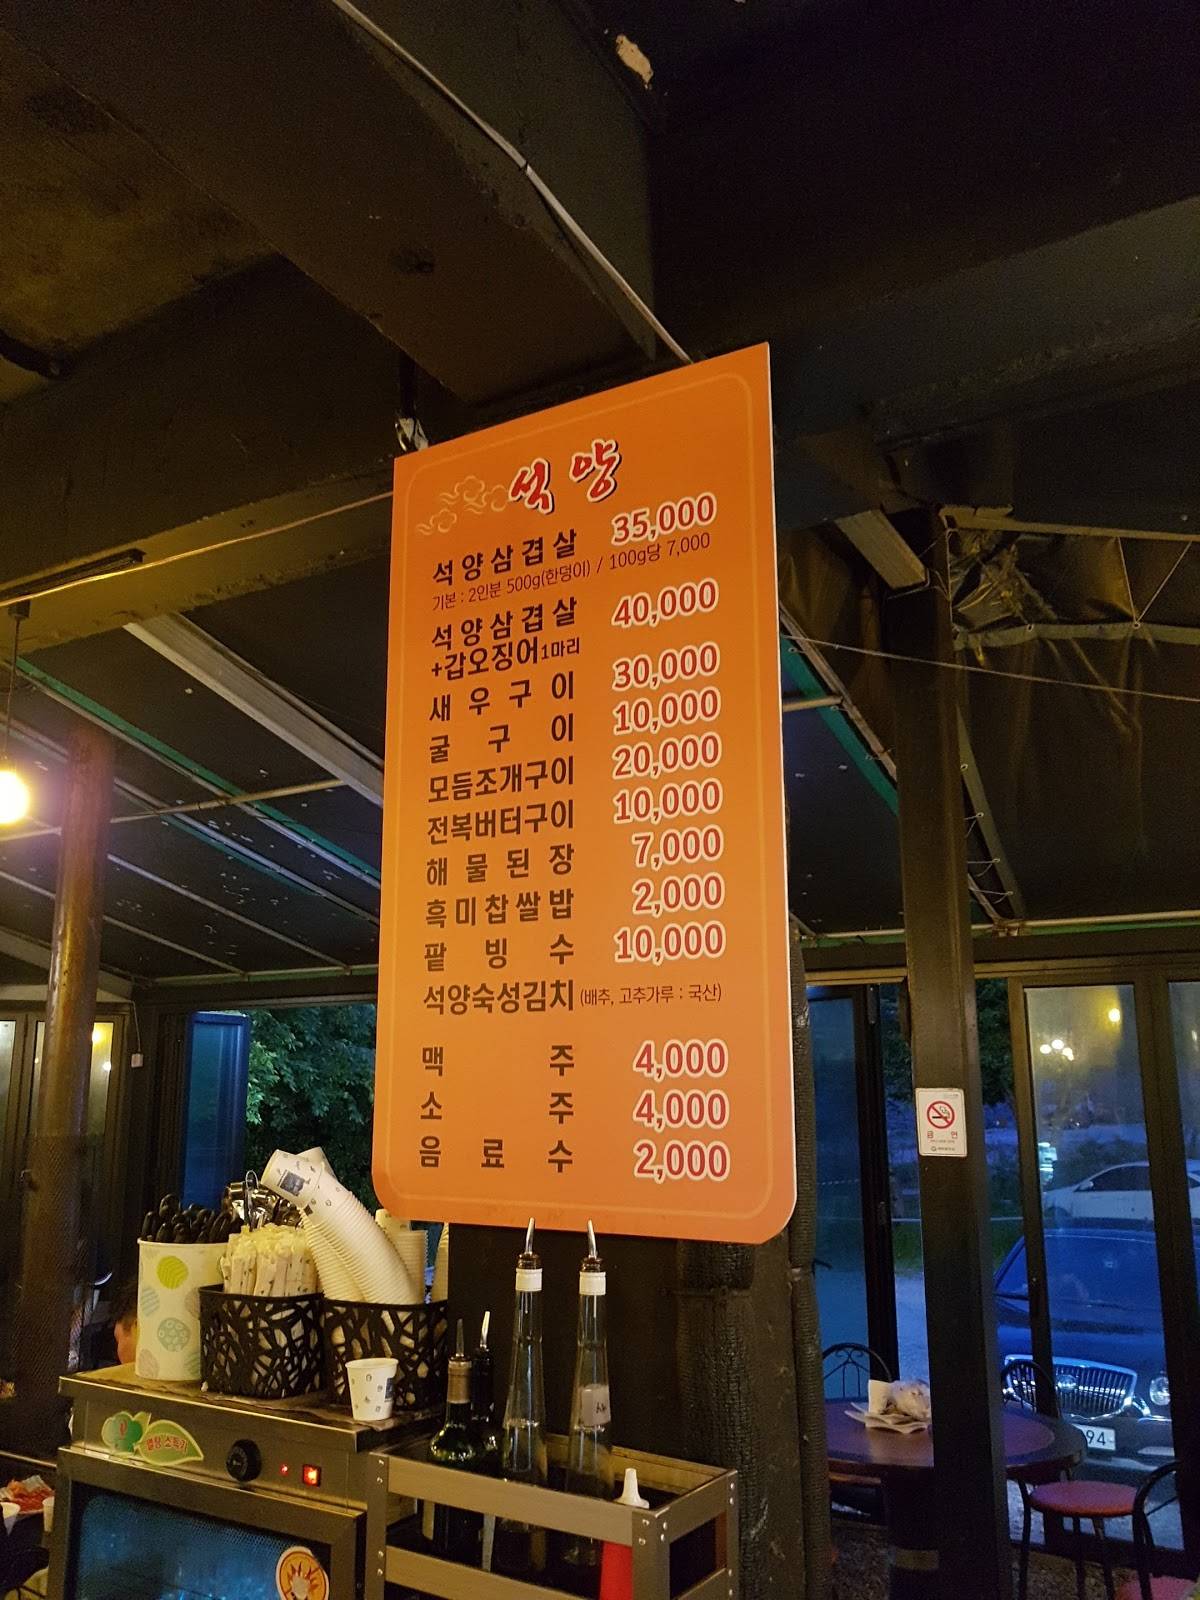 석양
석양삼겹살 35,000
기본 : 2인분 500g(한덩이) / 100g당 7,000
석양삼겹살 40,000
+갑오징어1마리
새우구이 30,000
굴구이 10,000
모듬조개구이 20,000
전복버터구이 10,000
해물된장 7,000
흑미찹쌀밥 2,000
팥빙수 10,000
석양숙성김치 (배추, 고추가루 : 국산)
맥주 4,000
소주 4,000
음료수 2,000
금연
94